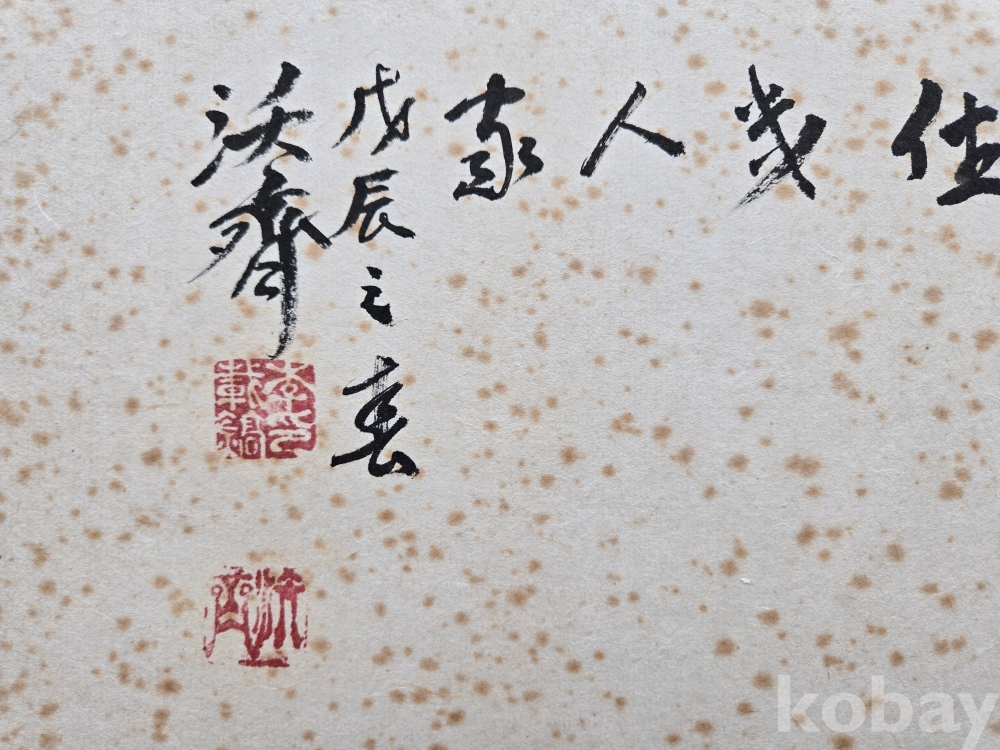 住幾人家
戊辰之春
沃齋
kobay